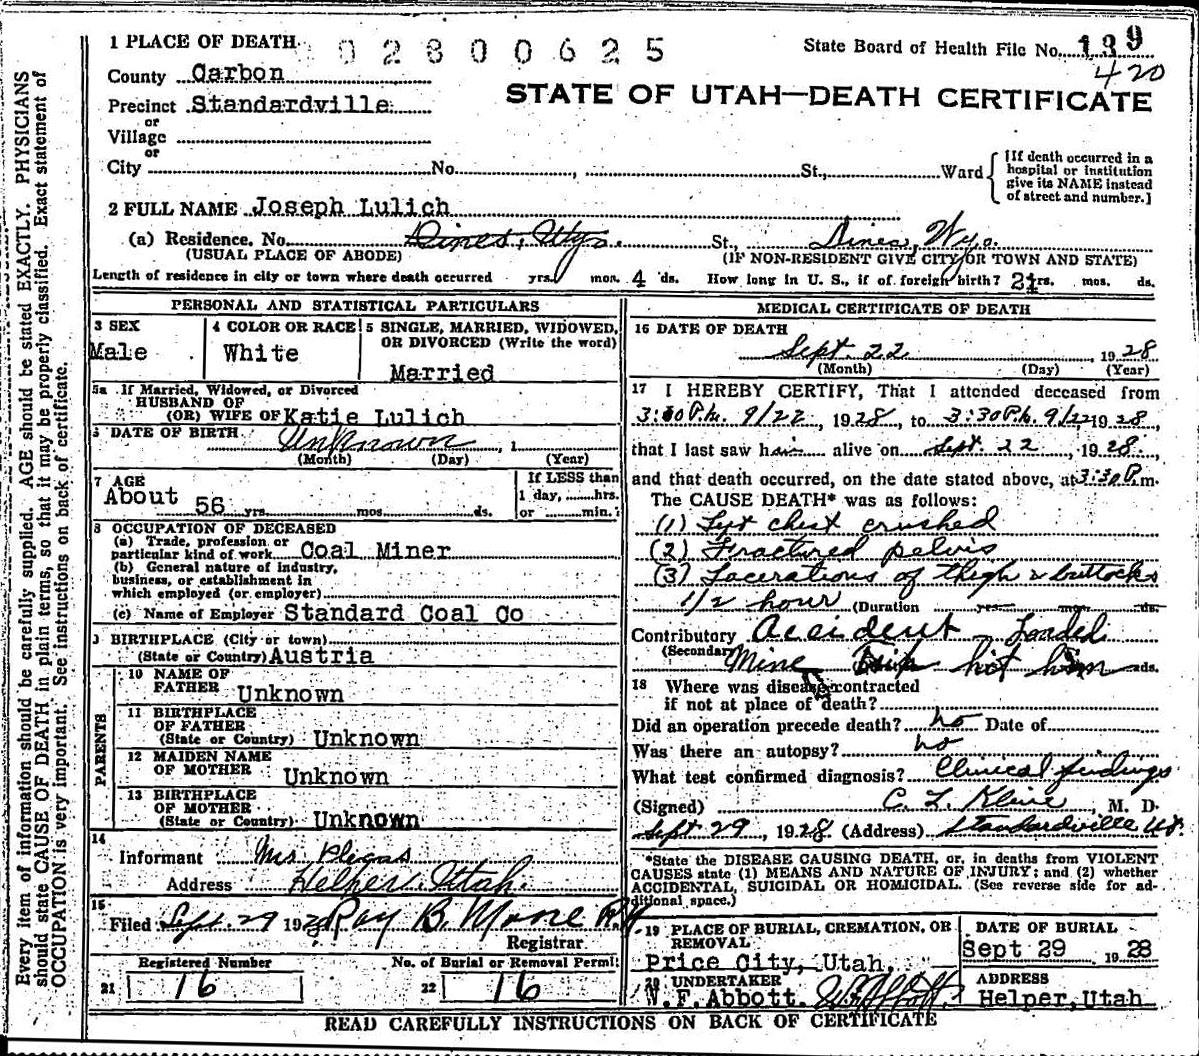 Every item of information should be carefully supplied. AGE should be stated EXACTLY. PHYSICIANS
should state CAUSE OF DEATH in plain terms, so that it may be properly classified. Exact statement of
OCCUPATION is very important. See instructions on back of certificate.
1 PLACE OF DEATH
02800625
State Board of Health File No. 139
420
County Carbon
STATE OF UTAH—DEATH CERTIFICATE
Precinct Standardville
or
Village
or
City No. , St., Ward
[If death occurred in a
hospital or institution
give its NAME instead
of street and number.]
2 FULL NAME Joseph Lulich
(a) Residence. No. Dines, Wyo. St., Dines, Wyo.
(USUAL PLACE OF ABODE) (IF NON-RESIDENT GIVE CITY OR TOWN AND STATE)
Length of residence in city or town where death occurred yrs. mos. 4 ds. How long in U. S., if of foreign birth? 21 yrs. mos. ds.
PERSONAL AND STATISTICAL PARTICULARS
3 SEX
Male
4 COLOR OR RACE
White
5 SINGLE, MARRIED, WIDOWED,
OR DIVORCED (Write the word)
Married
5a If Married, Widowed, or Divorced
HUSBAND OF
(OR) WIFE OF Katie Lulich
6 DATE OF BIRTH Unknown , 1
(Month) (Day) (Year)
7 AGE
About 56 yrs. mos. ds.
If LESS than
1 day, hrs.
or min.
8 OCCUPATION OF DECEASED
(a) Trade, profession or
particular kind of work Coal Miner
(b) General nature of industry,
business, or establishment in
which employed (or employer)
(c) Name of Employer Standard Coal Co
9 BIRTHPLACE (City or town)
(State or Country) Austria
PARENTS
10 NAME OF
FATHER Unknown
11 BIRTHPLACE
OF FATHER
(State or Country) Unknown
12 MAIDEN NAME
OF MOTHER Unknown
13 BIRTHPLACE
OF MOTHER
(State or Country) Unknown
14
Informant Mrs
Address Helper Utah.
15
Filed Sept. 29 1928 Ray B. Moore
Registrar
Registered Number
21 16
No. of Burial or Removal Permit
22 16
MEDICAL CERTIFICATE OF DEATH
16 DATE OF DEATH
Sept. 22 , 1928
(Month) (Day) (Year)
17 I HEREBY CERTIFY, That I attended deceased from
3:00 P.m. 9/22, 1928, to 3:30 P.m. 9/22 1928
that I last saw him alive on Sept. 22, 1928,
and that death occurred, on the date stated above, at 3:30 P.m.
The CAUSE DEATH* was as follows:
(1) chest crushed
(2) Fractured pelvis
(3) Lacerations of thigh & buttocks
1/2 hour (Duration yrs. mos. ds.
Contributory Accident - Loaded
(Secondary) Mine Trip hit him ds.
18 Where was disease contracted
if not at place of death?
Did an operation precede death? no Date of
Was there an autopsy? no
What test confirmed diagnosis? Clinical findings
(Signed) C. L. Kline, M. D.
Sept 29, 1928. (Address) Standardville Ut.
*State the DISEASE CAUSING DEATH, or, in deaths from VIOLENT
CAUSES state (1) MEANS AND NATURE OF INJURY; and (2) whether
ACCIDENTAL, SUICIDAL OR HOMICIDAL. (See reverse side for ad-
ditional space.)
19 PLACE OF BURIAL, CREMATION, OR
REMOVAL
Price City, Utah,
DATE OF BURIAL
Sept 29 1928
20 UNDERTAKER
W.F.Abbott.
ADDRESS
Helper, Utah
READ CAREFULLY INSTRUCTIONS ON BACK OF CERTIFICATE